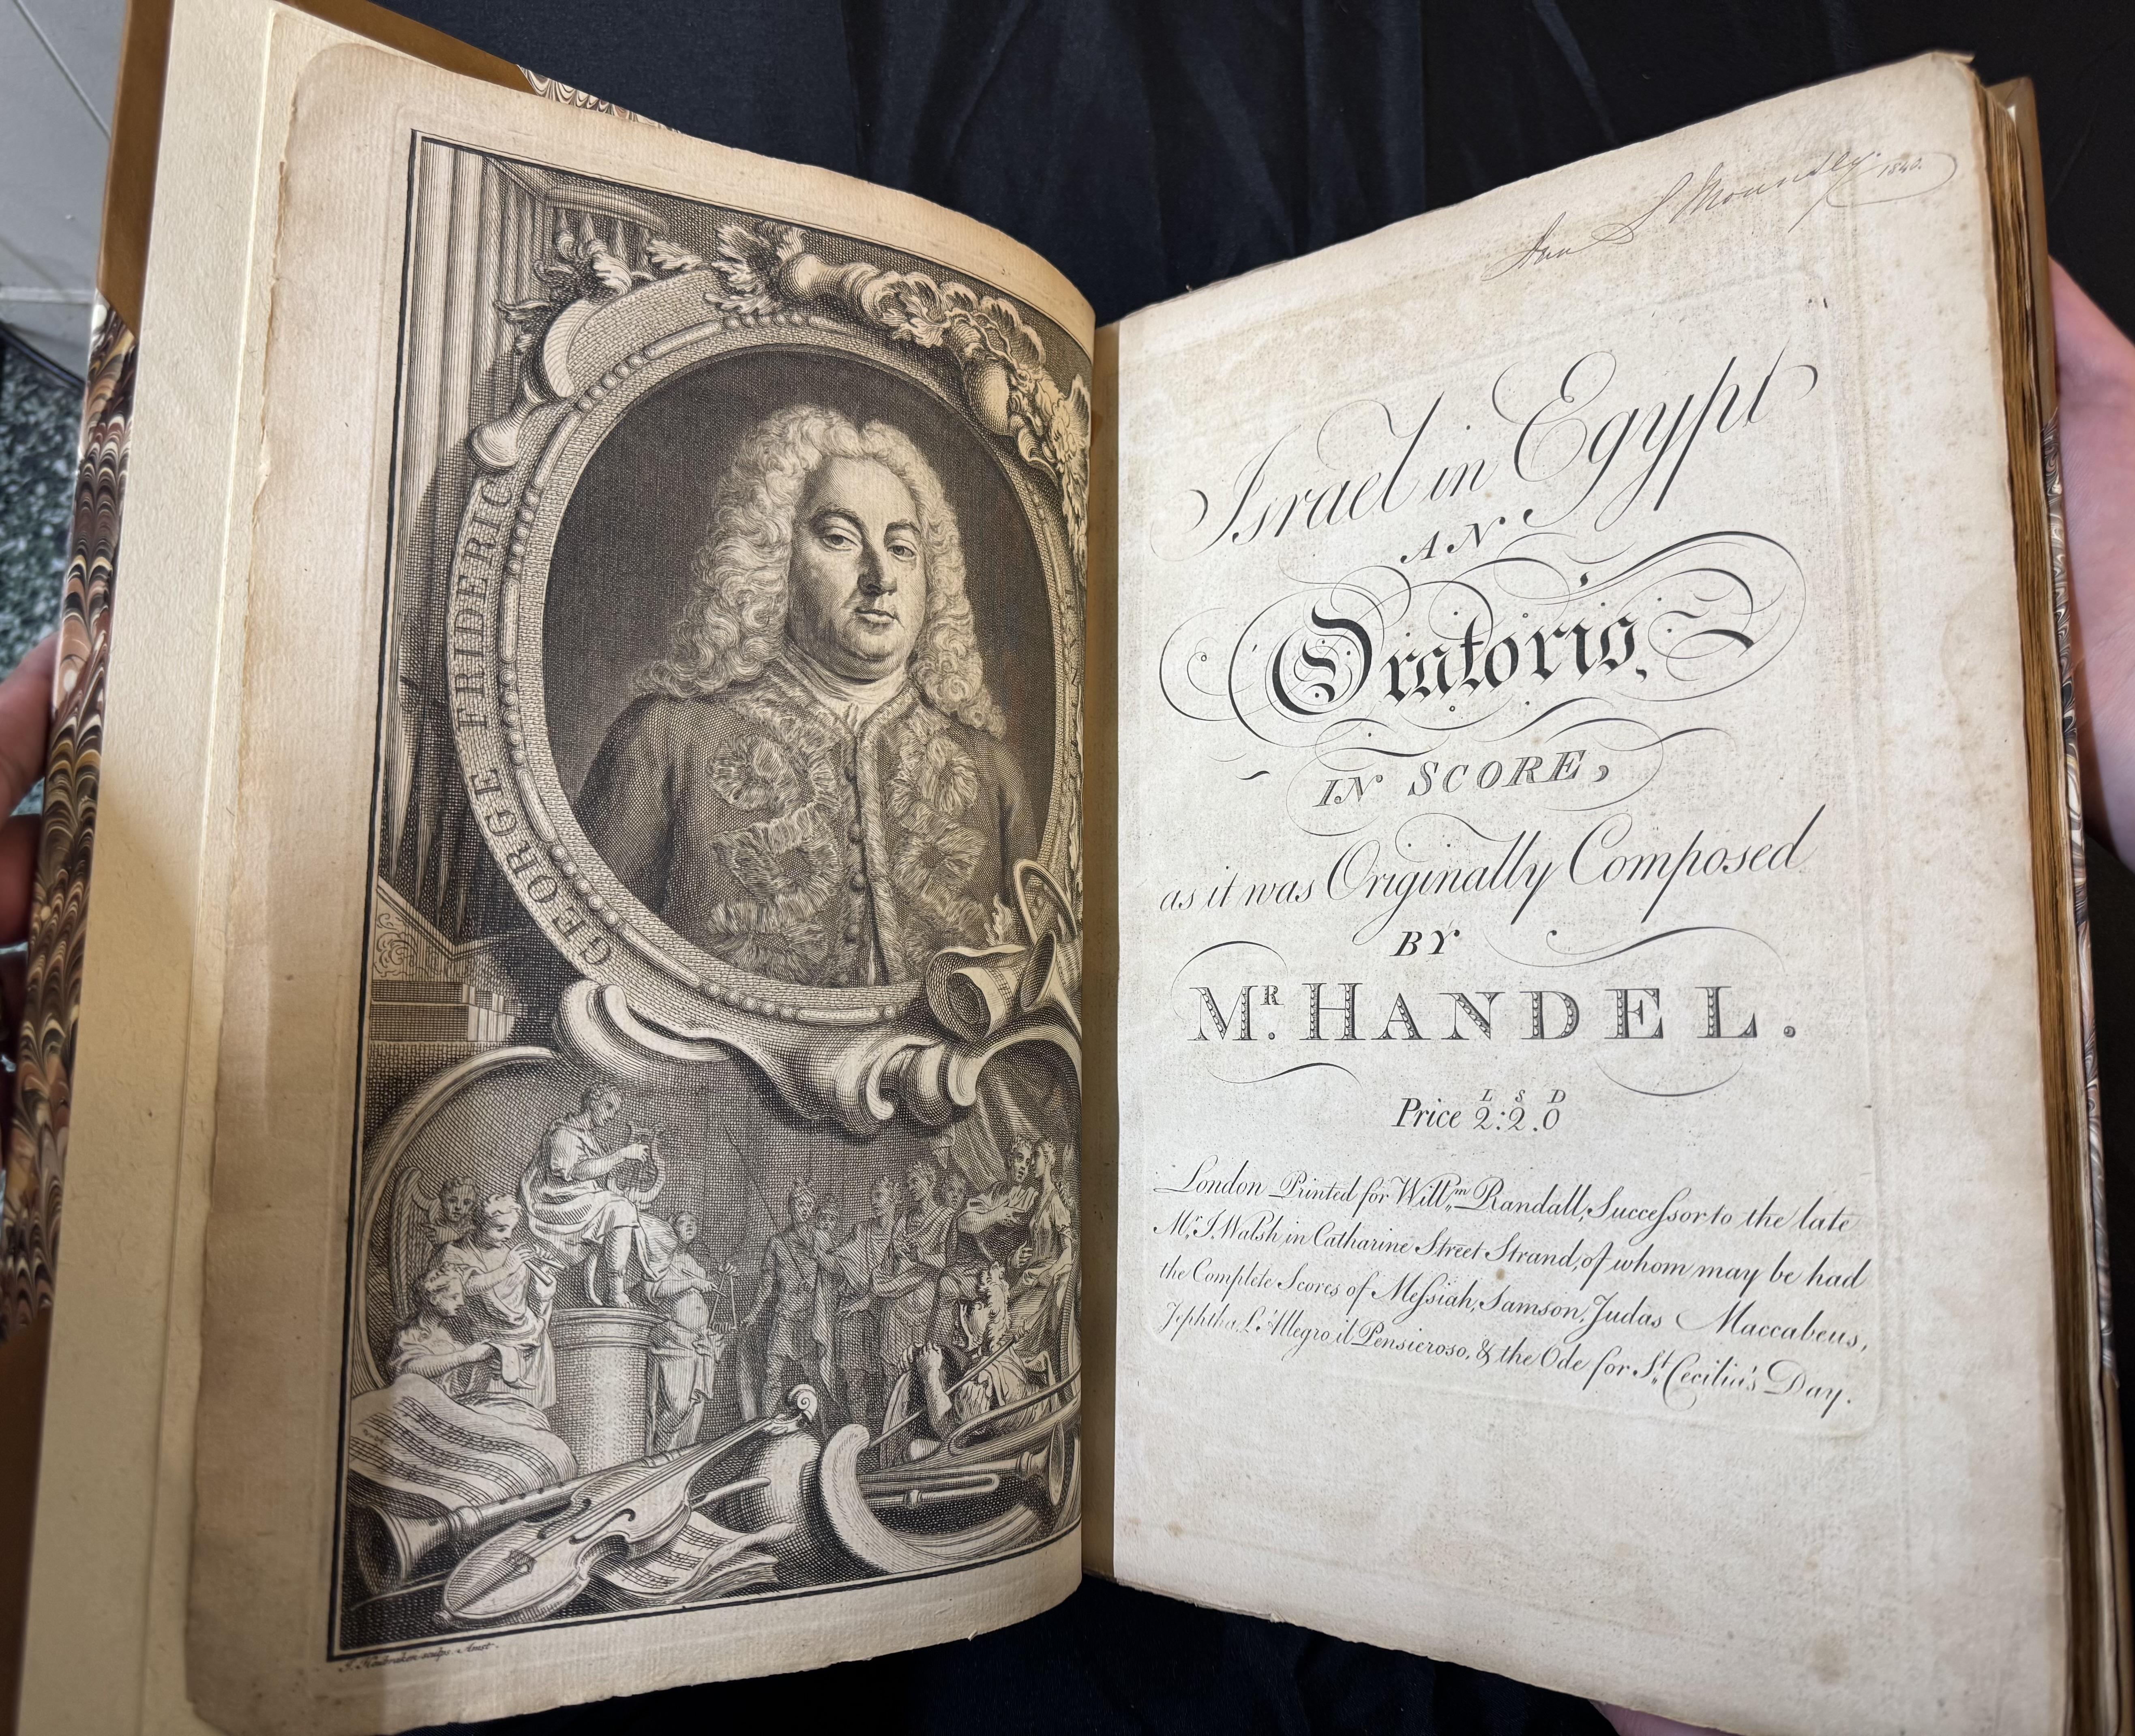 GEORGE FRIDERIC
J. Houbraken sculps. Amst.
1840.
Israel in Egypt
AN
Oratorio,
IN SCORE,
as it was Originally Composed
BY
MR. HANDEL.
L S D
Price 2:2.0
London Printed for Willm. Randall, Succeſsor to the late
Mr. J. Walsh in Catharine Street Strand, of whom may be had
the Complete Scores of Meſsiah, Samson, Judas Maccabeus,
Jephtha, L'Allegro il Pensieroso, & the Ode for St. Cecilia's Day.